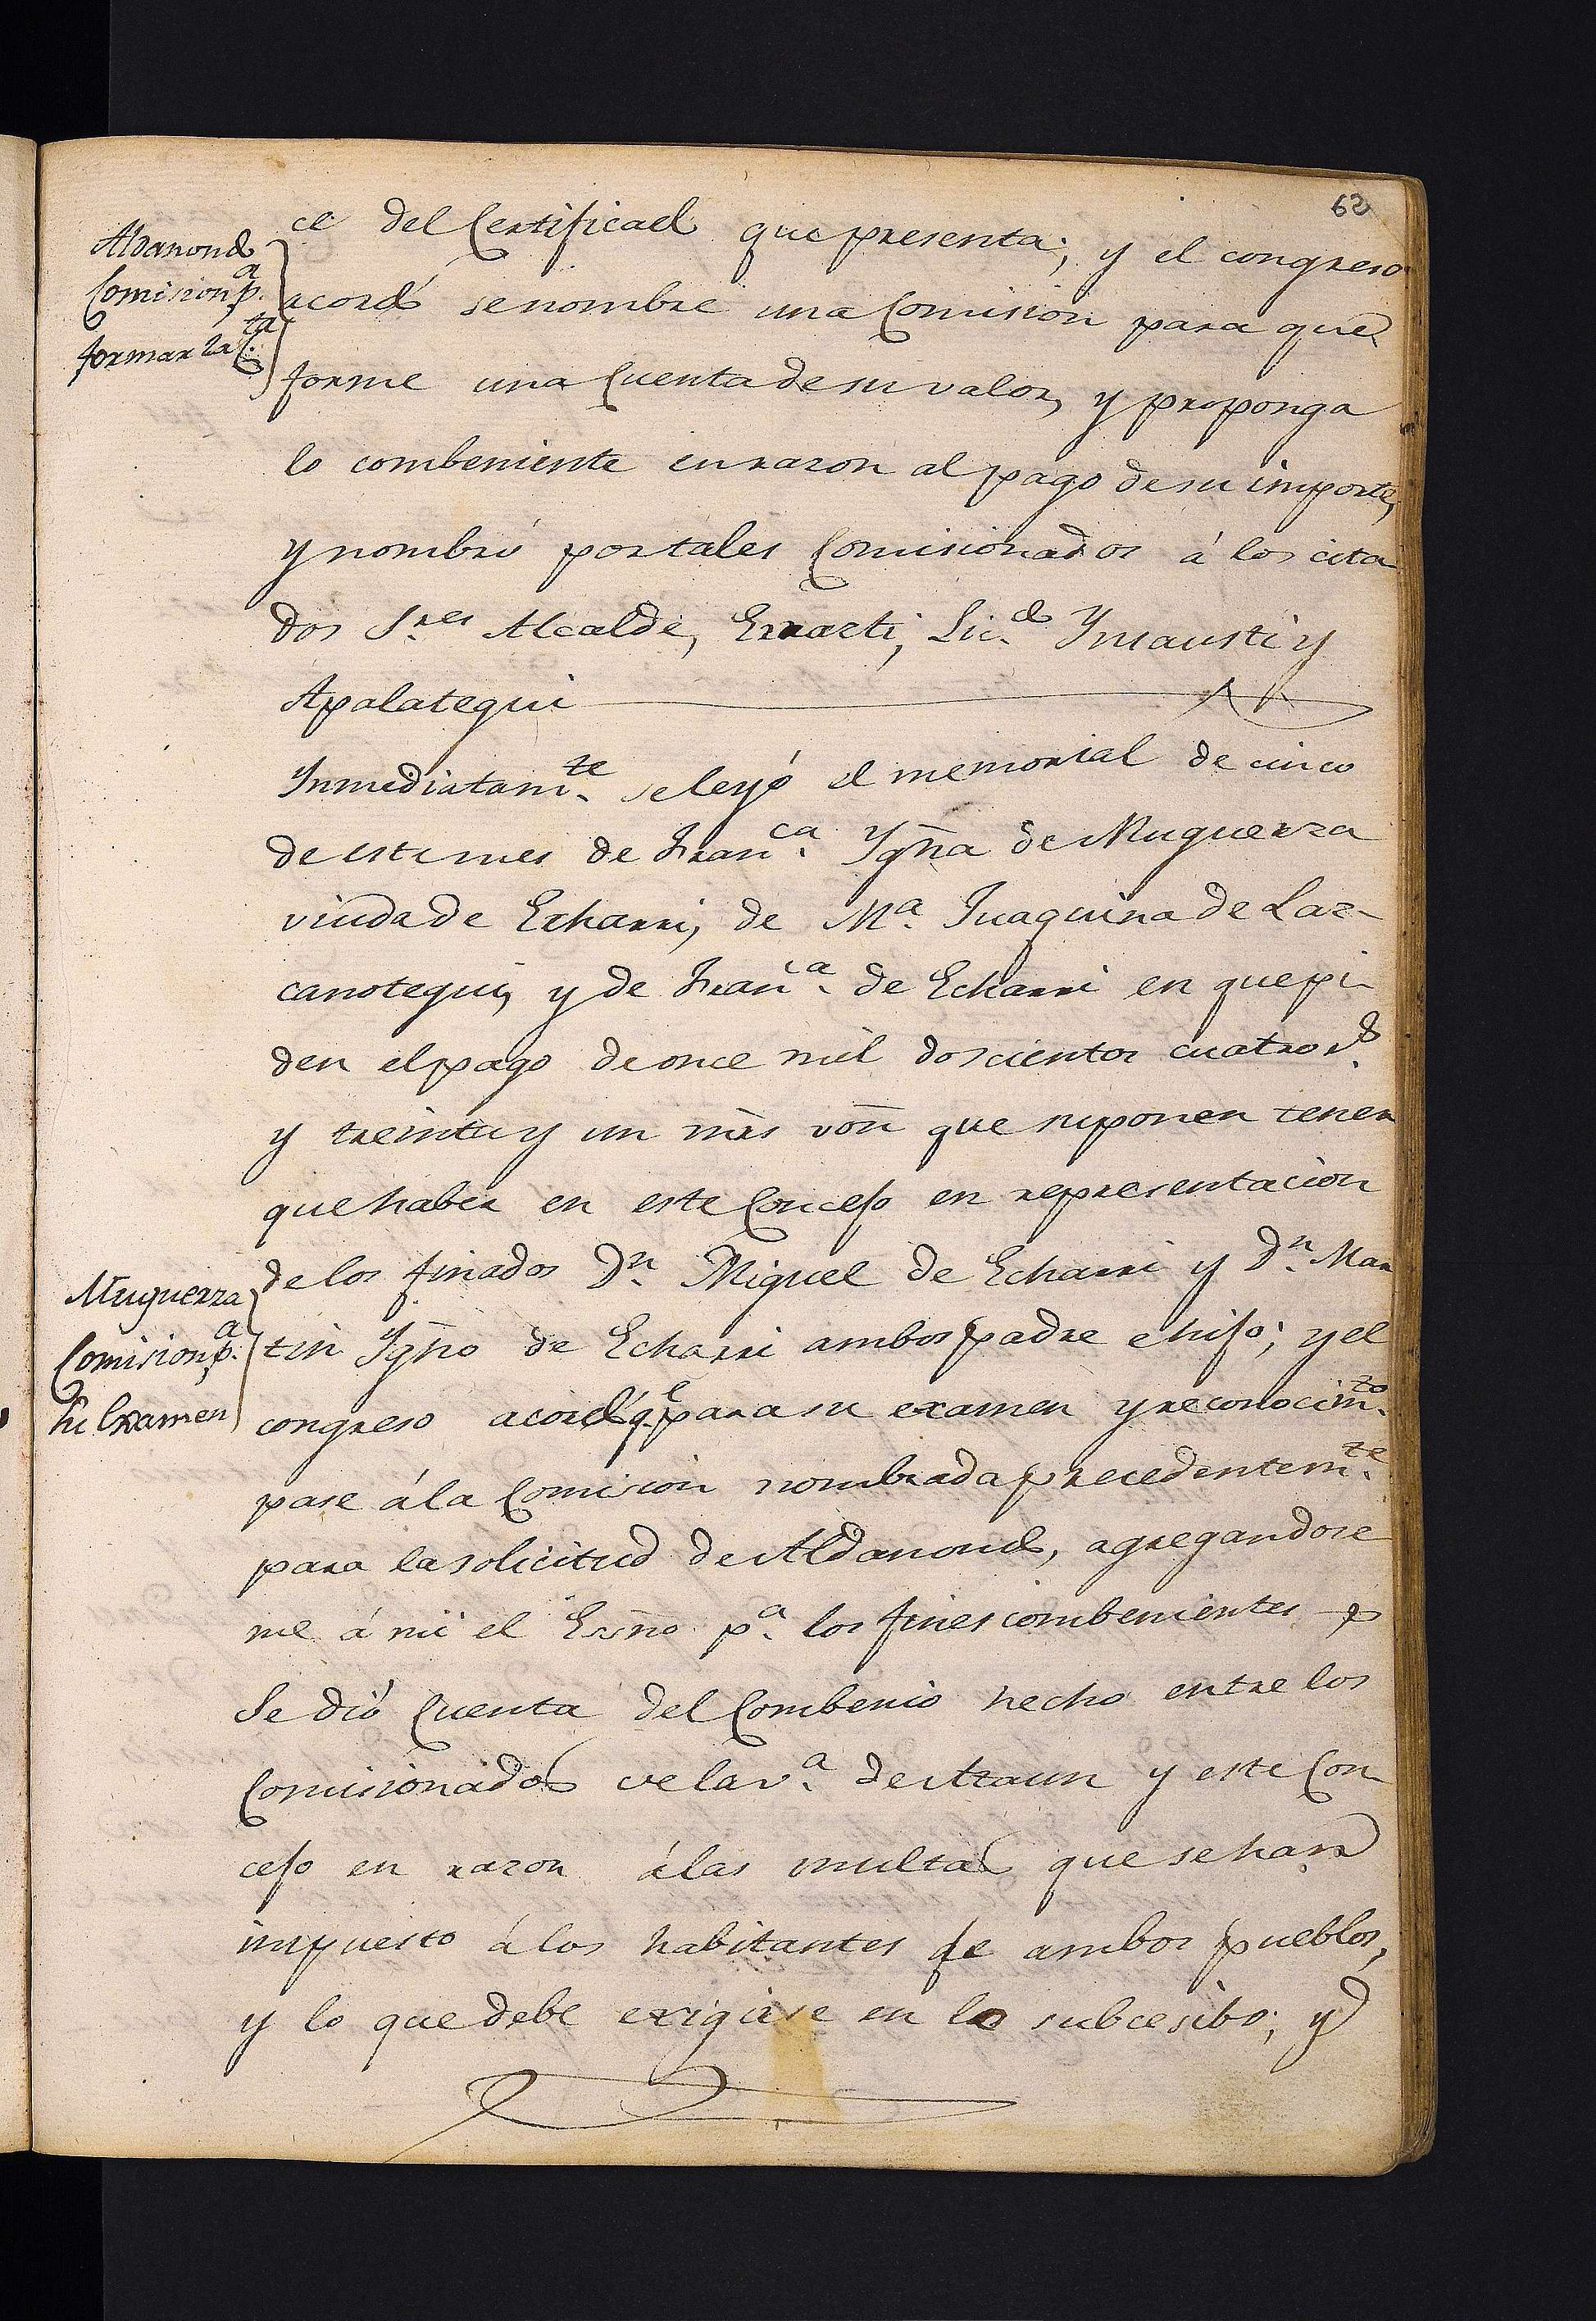 62
Aldanondo
Comision p.ª
formar la C.ta
ce del Certificado que presenta; y el congreso
acordó se nombre una Comision para que
forme una Cuenta de su valor, y proponga
lo combeniente en razon al pago de su importe,
y nombró por tales Comisionados á los cita
dos S.res Alcalde, Errazti, Lic.do Ynsausti y
Apalategui
Inmediatam.te se leyó el memorial de cinco
de este mes de Fran.ca Ygña de Muguerza
viuda de Echarri, de M.ª Juaquina de Laz-
canotegui, y de Fran.ca de Echarri en que pi-
den el pago de once mil doscientos cuatro r.s
y treinta y un mrs von que suponen tener
que haber en este Concejo en representacion
de los finados D.n Miguel de Echarri y D.n Mar
Muguerza
Comision p.ª
su Examen
tin Ygño de Echarri ambos padre e hijo; y el
congreso acordó q.e para su examen y reconocim.to
pase á la Comision nombrada precedentem.te
para la solicitud de Aldanondo, agregandose
me á mi el Essño p.ª los fines combenientes
Se dió Cuenta del Combenio hecho entre los
Comisionados de la v.ª de Ataun y este Con
cejo en razon á las multas que se han
impuesto á los habitantes de ambos pueblos,
y lo que debe exigirse en lo subcesibo; y